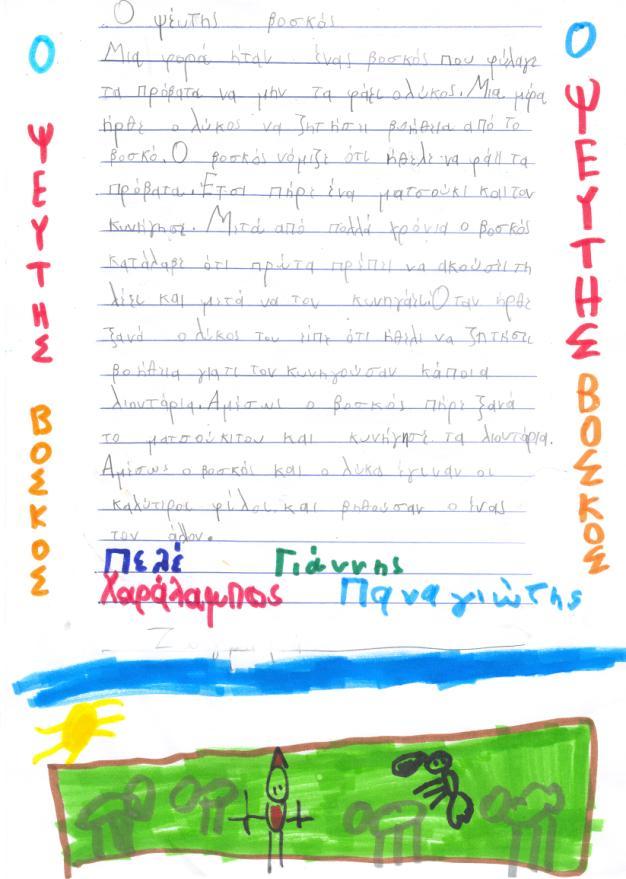 Ο ψεύτης βοσκός
Μια φορά ήταν ένας βοσκός που φύλαγε
τα πρόβατα να μην τα φάει ο λύκος. Μια μέρα
ήρθε ο λύκος να ζητήσει βοήθεια από το
βοσκό. Ο βοσκός νόμιζε ότι ήθελε να φάει τα
πρόβατα. Έτσι πήρε ένα ματσούκι και τον
κυνήγησε. Μετά από πολλά χρόνια ο βοσκός
κατάλαβε ότι πρώτα πρέπει να ακούσει τη
λέει και μετά να τον κυνηγάει. Όταν ήρθε
ξανά ο λύκος του είπε ότι ήθελε να ζητήσει
βοήθεια γιατι τον κυνηγούσαν κάποια
λιοντάρια. Αμέσως ο βοσκός πήρε ξανά
το ματσούκιτου και κυνήγησε τα λιοντάρια.
Αμέσως ο βοσκός και ο λύκο έγιναν οι
καλύτεροι φίλοι και βηθούσαν ο ένας
τον άλλον.
Πελέ Γιάννης
Χαράλαμπως Παναγιώτης
Ο
ΨΕΥΤΗΣ
ΒΟΣΚΟΣ
Ο
ΨΕΥΤΗΣ
ΒΟΣΚΟΣ